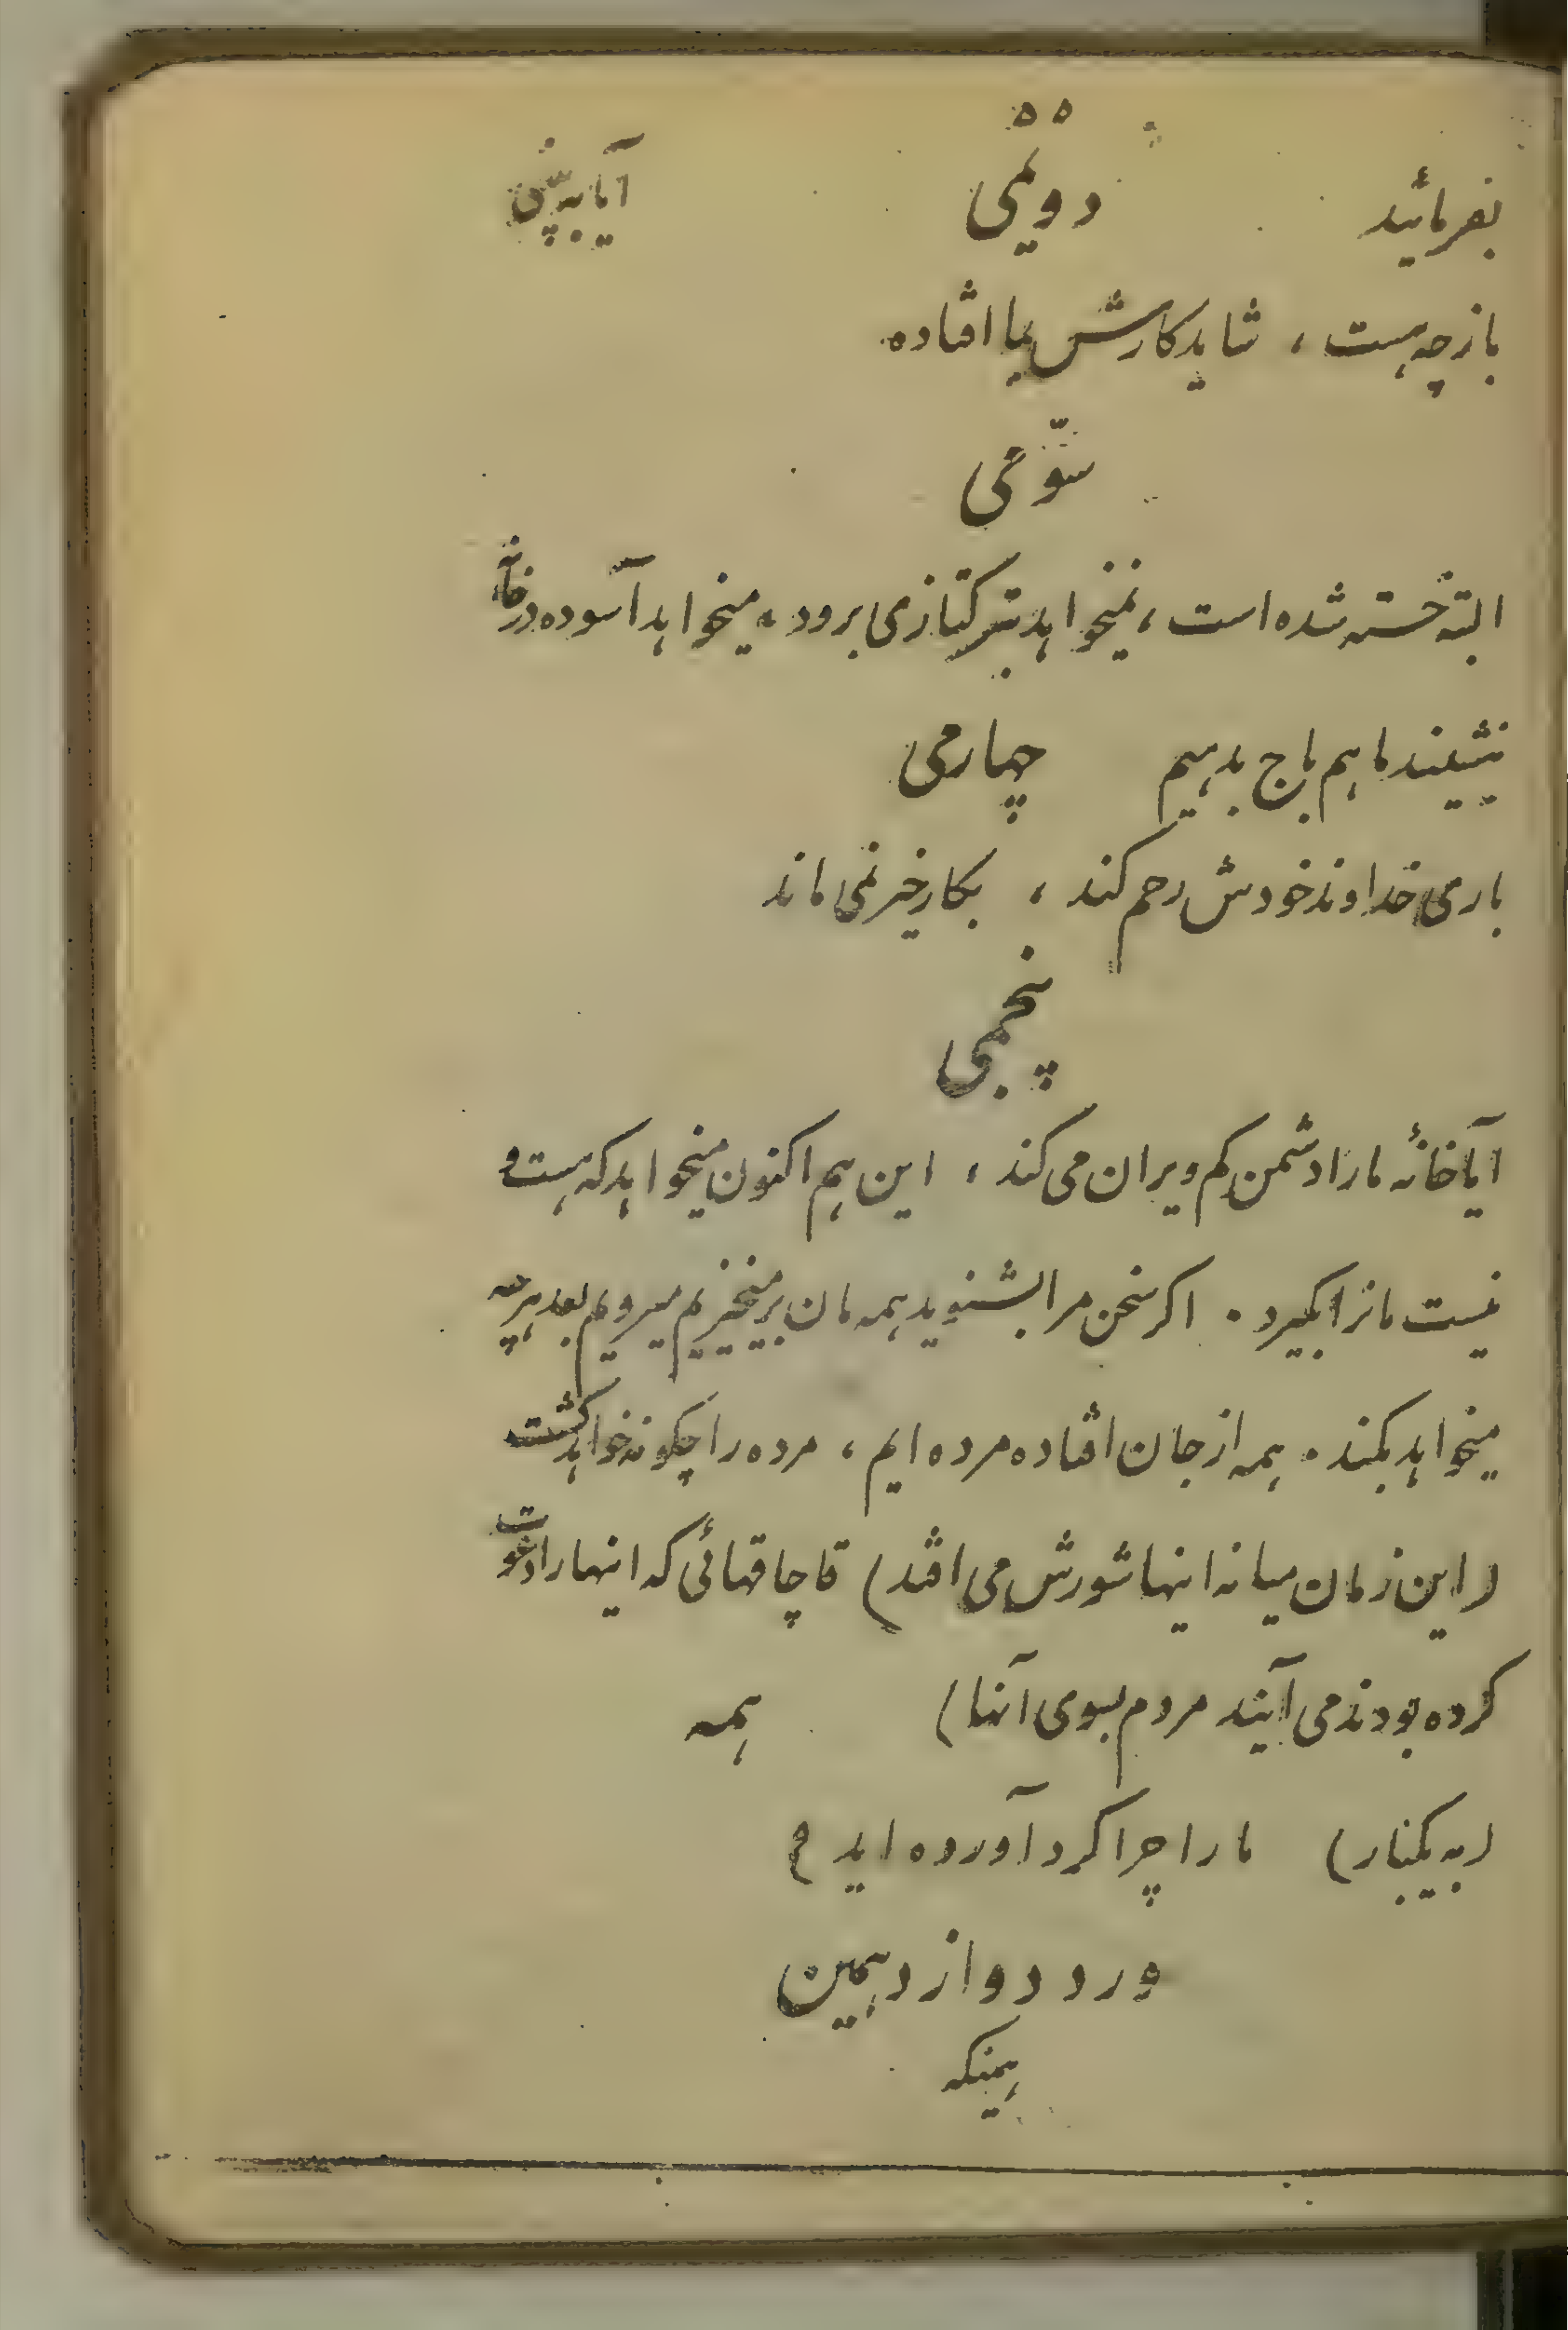 ۵۵
بفرمائید دویمّی آیا به بینی
باز چه هست ، شاید کارش بما افتاده
سوّمی
البته خسته شده است ، نمیخواهد بترکتازی برود ، میخواهد آسوده در خانه
نشیند ما هم باج بدهیم چهارمی
باری خداوند خودش رحم کند ، بکار خیر نمی ماند
پنجمی
آیا خانهٔ ما را دشمن کم ویران می کند ، این هم اکنون میخواهد که هست و
نیست مانرا بگیرد . اکر سخن مرا بشنوید همه مان برمیخیزیم میرویم بعد هرچه
میخواهد بکند . همه از جان افتاده مرده ایم ، مرده را چکونه خواهد کشت
(این زمان میانه اینها شورش می افتد) قاچاقهائی که اینها را دعوت
کرده بودند می آیند مردم بسوی آنها) همه
(به یکبار) ما را چرا کرد آورده اید ؟
ورود دوازدهمین
همینکه